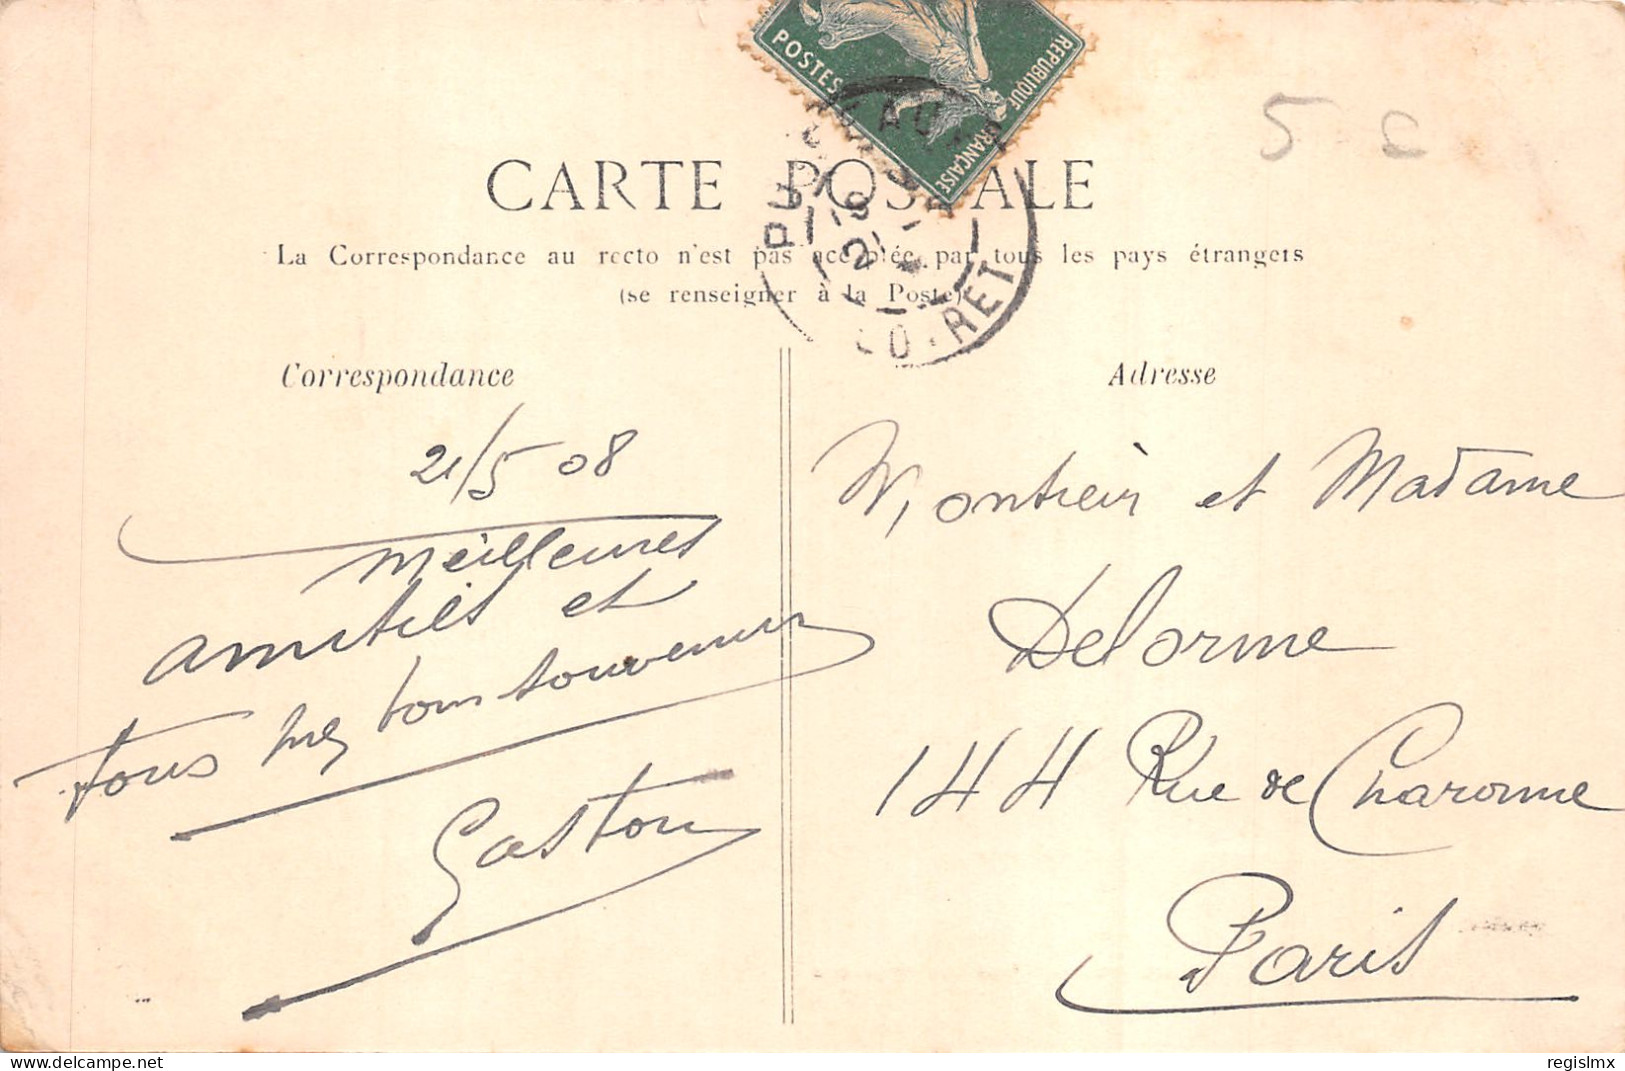 POSTES
REPUBLIQUE
FRANÇAISE
CARTE POSTALE
La Correspondance au recto n'est pas acceptée par tous les pays étrangers
(se renseigner à la Poste)
5
LOIRET
Correspondance
Adresse
21/5 08
Meilleures
amitiés et
tous mes bons souvenirs
Gaston
Monsieur et Madame
Delorme
144 Rue de Charonne
Paris
regislmx